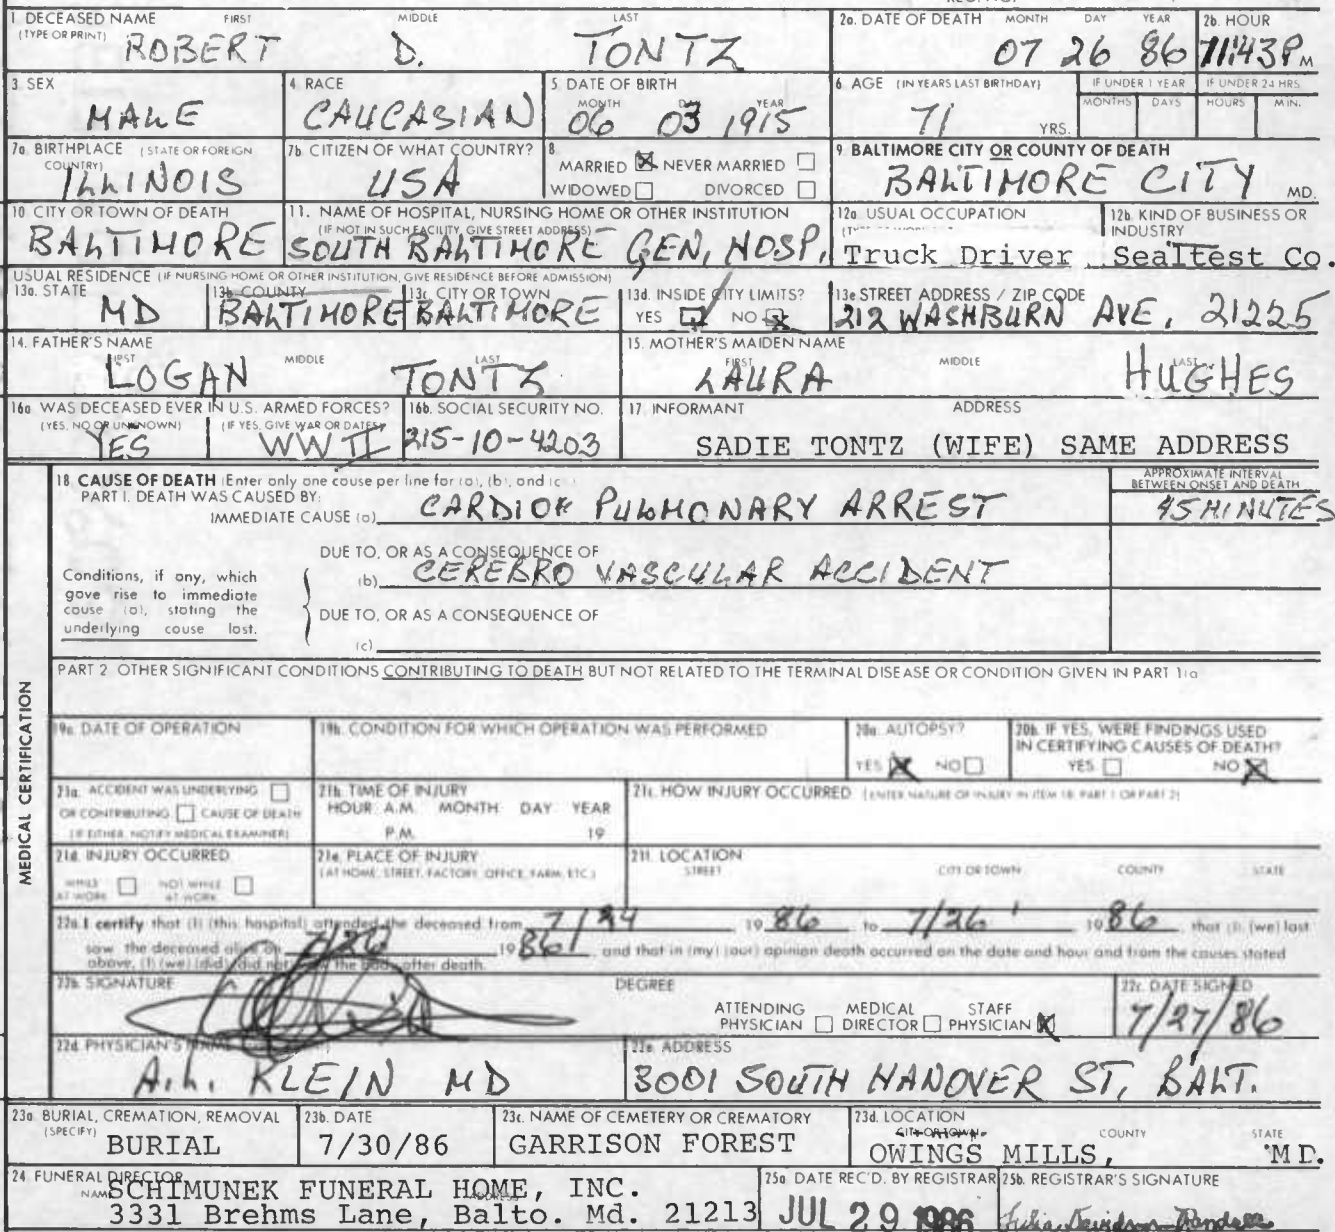 1 DECEASED NAME FIRST MIDDLE LAST
(TYPE OR PRINT) ROBERT D. TONTZ
2a. DATE OF DEATH MONTH DAY YEAR
07 26 86
2b. HOUR
11:43P M
3 SEX
MALE
4 RACE
CAUCASIAN
5 DATE OF BIRTH
MONTH YEAR
06 03 1915
6 AGE (IN YEARS LAST BIRTHDAY)
71 YRS.
IF UNDER 1 YEAR
MONTHS DAYS
IF UNDER 24 HRS
HOURS MIN.
7a BIRTHPLACE (STATE OR FOREIGN
COUNTRY)
ILLINOIS
7b CITIZEN OF WHAT COUNTRY?
USA
8
MARRIED NEVER MARRIED
WIDOWED DIVORCED
9 BALTIMORE CITY OR COUNTY OF DEATH
BALTIMORE CITY MD.
10 CITY OR TOWN OF DEATH
BALTIMORE
11. NAME OF HOSPITAL, NURSING HOME OR OTHER INSTITUTION
(IF NOT IN SUCH FACILITY, GIVE STREET ADDRESS)
SOUTH BALTIMORE GEN. HOSP.
12a. USUAL OCCUPATION
Truck Driver
12b. KIND OF BUSINESS OR
INDUSTRY
Sealtest Co.
USUAL RESIDENCE (IF NURSING HOME OR OTHER INSTITUTION, GIVE RESIDENCE BEFORE ADMISSION)
13a. STATE
MD
13b COUNTY
BALTIMORE
13c CITY OR TOWN
BALTIMORE
13d. INSIDE CITY LIMITS?
YES NO
13e STREET ADDRESS / ZIP CODE
212 WASHBURN AVE, 21225
14. FATHER'S NAME
FIRST MIDDLE LAST
LOGAN TONTZ
15. MOTHER'S MAIDEN NAME
FIRST MIDDLE LAST
LAURA HUGHES
16a WAS DECEASED EVER IN U.S. ARMED FORCES?
(YES, NO OR UNKNOWN) (IF YES, GIVE WAR OR DATES)
YES WW II
16b. SOCIAL SECURITY NO.
215-10-4203
17 INFORMANT ADDRESS
SADIE TONTZ (WIFE) SAME ADDRESS
MEDICAL CERTIFICATION
18 CAUSE OF DEATH (Enter only one cause per line for (a), (b), and (c)
PART I. DEATH WAS CAUSED BY:
IMMEDIATE CAUSE (a) CARDIO PULMONARY ARREST
APPROXIMATE INTERVAL
BETWEEN ONSET AND DEATH
45 MINUTES
Conditions, if any, which
gave rise to immediate
cause (a), stating the
underlying cause last.
DUE TO, OR AS A CONSEQUENCE OF
(b) CEREBRO VASCULAR ACCIDENT
DUE TO, OR AS A CONSEQUENCE OF
(c)
PART 2 OTHER SIGNIFICANT CONDITIONS CONTRIBUTING TO DEATH BUT NOT RELATED TO THE TERMINAL DISEASE OR CONDITION GIVEN IN PART 1(a
19a. DATE OF OPERATION
19b. CONDITION FOR WHICH OPERATION WAS PERFORMED
20a. AUTOPSY?
YES NO
20b. IF YES, WERE FINDINGS USED
IN CERTIFYING CAUSES OF DEATH?
YES NO
21a. ACCIDENT WAS UNDERLYING
OR CONTRIBUTING CAUSE OF DEATH
(IF EITHER, NOTIFY MEDICAL EXAMINER)
21b. TIME OF INJURY
HOUR A.M. MONTH DAY YEAR
P.M. 19
21c. HOW INJURY OCCURRED (ENTER NATURE OF INJURY IN ITEM 18 PART 1 OR PART 2)
21d. INJURY OCCURRED
WHILE AT WORK NOT WHILE AT WORK
21e. PLACE OF INJURY
(AT HOME, STREET, FACTORY, OFFICE, FARM, ETC.)
21f. LOCATION
STREET CITY OR TOWN COUNTY STATE
22a. I certify that (I) (this hospital) attended the deceased from 7/24 1986 to 7/26 1986, that (I) (we) last
saw the deceased alive on 7/26 1986, and that in (my) (our) opinion death occurred on the date and hour and from the causes stated
above, (I) (we) (did) (did not) the body after death.
22b. SIGNATURE DEGREE
ATTENDING PHYSICIAN MEDICAL DIRECTOR STAFF PHYSICIAN
22c. DATE SIGNED
7/27/86
22d. PHYSICIAN'S NAME
A.L. KLEIN MD
22e. ADDRESS
3001 SOUTH HANOVER ST, BALT.
23a. BURIAL, CREMATION, REMOVAL
(SPECIFY) BURIAL
23b. DATE
7/30/86
23c. NAME OF CEMETERY OR CREMATORY
GARRISON FOREST
23d. LOCATION
CITY OR TOWN COUNTY STATE
OWINGS MILLS, MD.
24 FUNERAL DIRECTOR
NAME SCHIMUNEK FUNERAL HOME, INC.
ADDRESS
3331 Brehms Lane, Balto. Md. 21213
25a DATE REC'D. BY REGISTRAR
JUL 29 1986
25b. REGISTRAR'S SIGNATURE